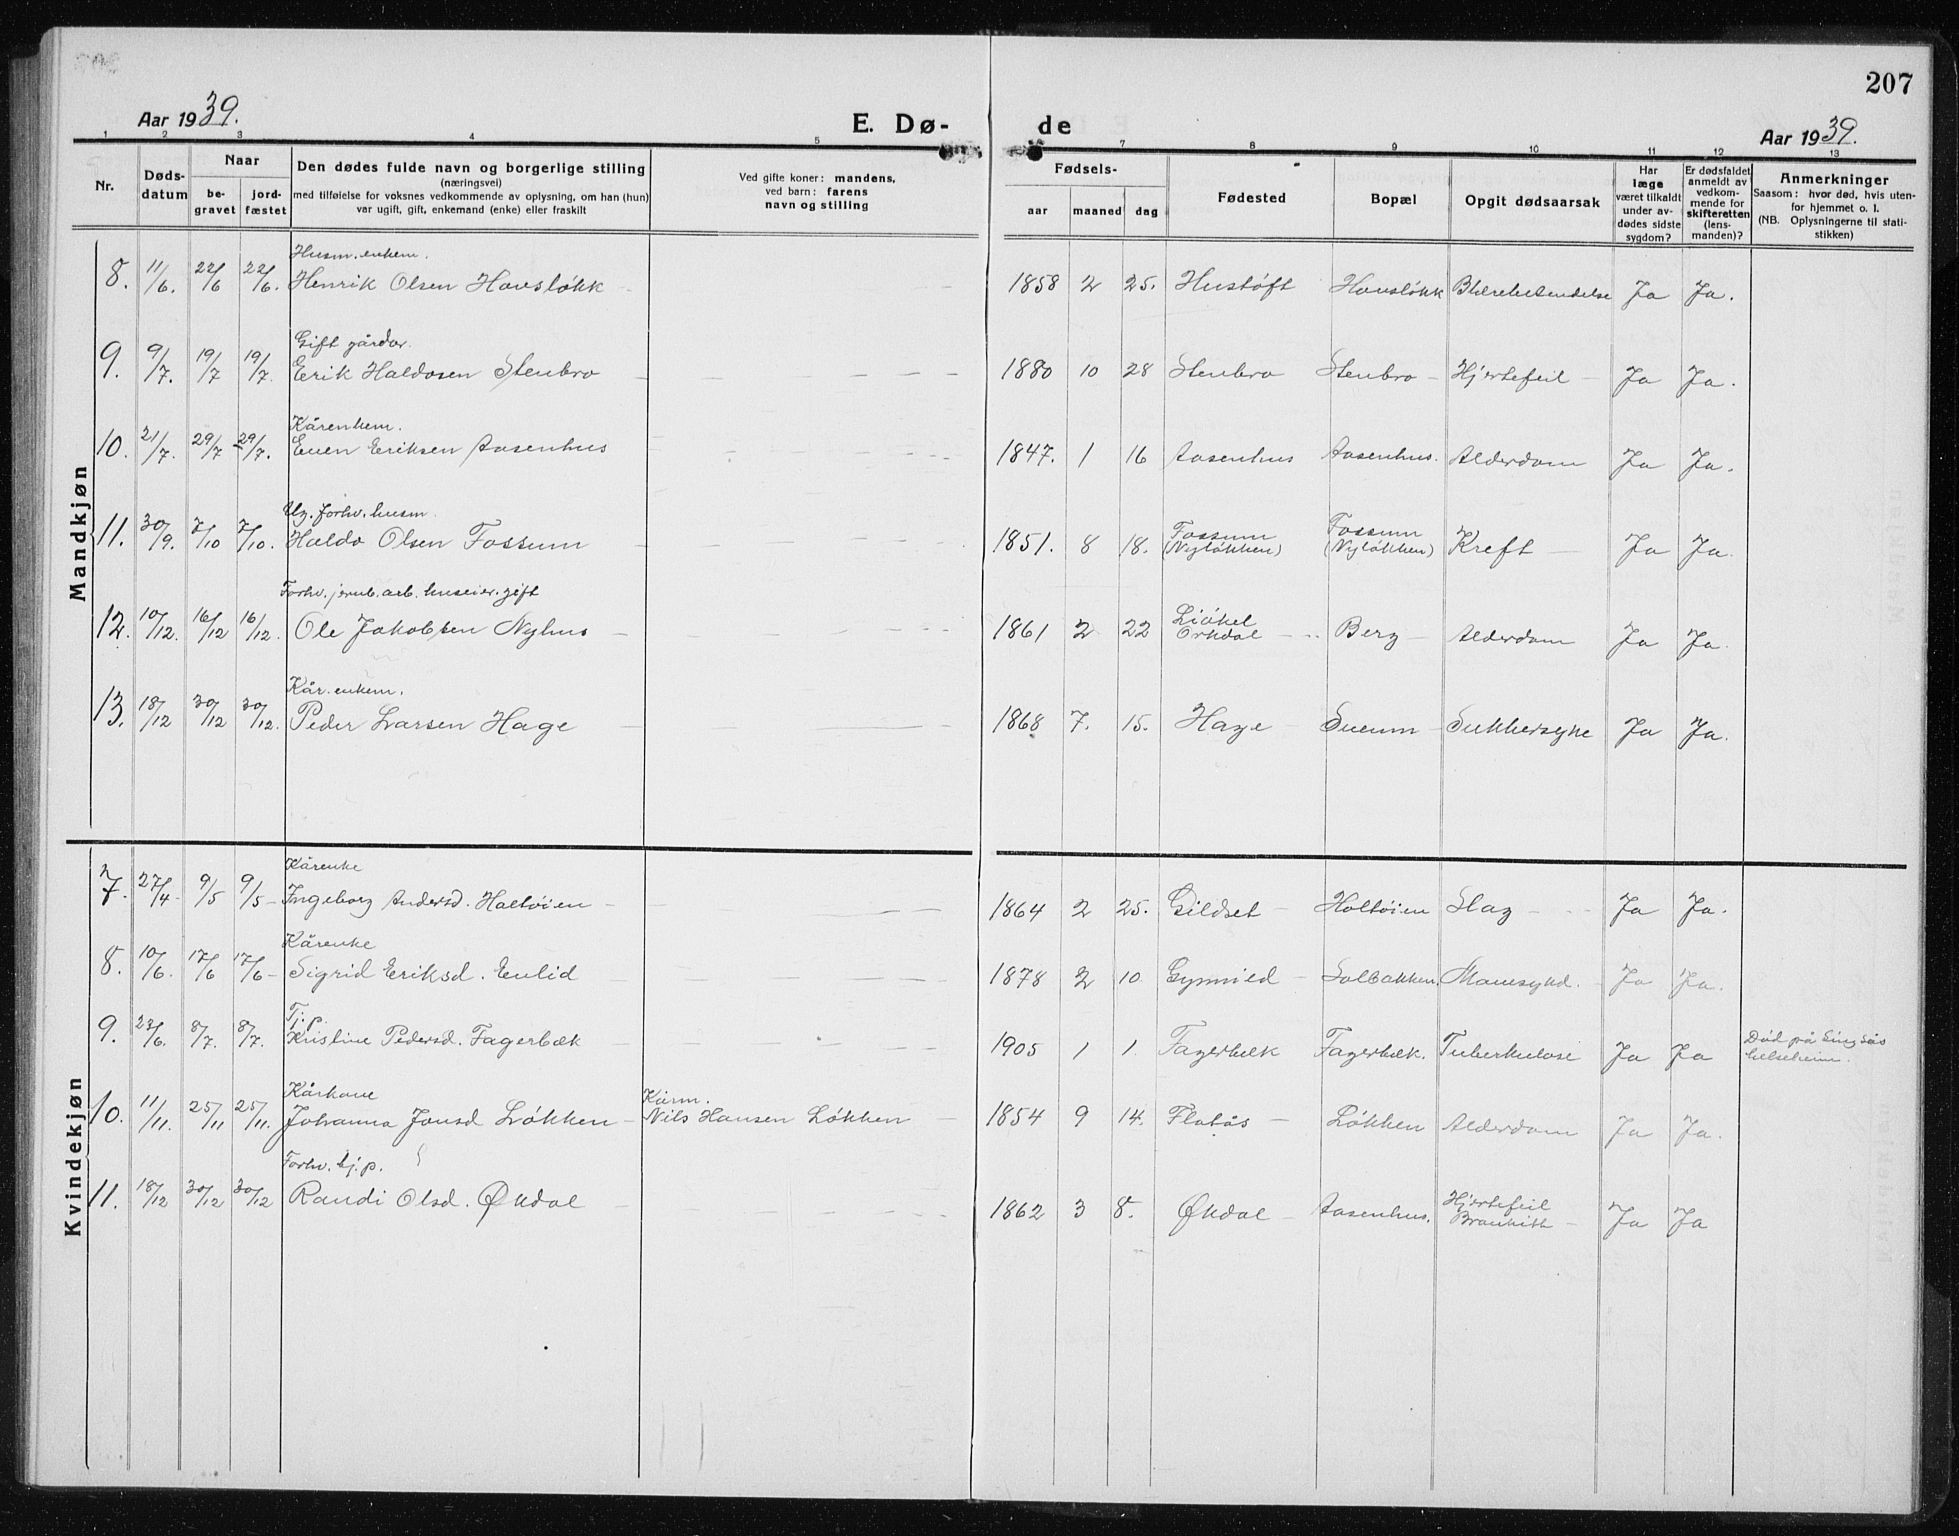 207
Aar 1939.
E. Dø-
de
Aar 1939.
1 2 3 4 5 7 8 9 10 11 12 13
Nr.
Døds-
datum
Naar
be-
gravet
jord-
fæstet
Den dødes fulde navn og borgerlige stilling
(næringsvei)
med tilføielse for voksnes vedkommende av oplysning, om han (hun)
var ugift, gift, enkemand (enke) eller fraskilt
Ved gifte koner: mandens,
ved barn: farens
navn og stilling
Fødsels-
aar maaned dag
Fødested
Bopæl
Opgit dødsaarsak
Har
læge
været tilkaldt
under av-
dødes sidste
sygdom?
Er dødsfaldet
anmeldt av
vedkom-
mende for
skifteretten
(lens-
manden)?
Anmerkninger
Saasom: hvor død, hvis uten-
for hjemmet o. l.
(NB. Oplysningerne til stati-
stikken)
Mandkjøn
Husm. enkem.
8. 11/6. 22/6 22/6. Henrik Olsen Hovsløkk - 1858 2 25. Hustøft Hovsløkk Blærebetendelse Ja Ja.
Gift gårdbr.
9. 9/7. 19/7 19/7. Erik Haldosen Stenbro 1880 10 28 Stenbro Stenbro - Hjertefeil - Ja Ja.
Kårenkem.
10. 21/7. 29/7 29/7. Even Eriksen Aasenhus 1847. 1 16 Aasenhus Aasenhus. Alderdom Ja Ja.
Ug. forhv. husm.
11. 30/9. 7/10 7/10. Haldo Olsen Fossum 1851. 8 18. Fossum (Nyløkken) Fossum (Nyløkken) Kreft - Ja Ja.
Forhv. jernb. arb. huseier. gift
12. 10/12. 16/12 16/12. Ole Jakobsen Nyhus - 1861 2 22 Orkdal Berg - Alderdom Ja Ja.
Kår. enkem.
13. 18/12 30/12 30/12. Peder Larsen Hage 1868 7. 15. Hage - Sukkersyke Ja Ja.
Kvindekjøn
Kårenke
7. 27/4. 9/5 9/5 - Ingeborg Andersd. Holtøien - 1864 2 25. Gildset - Holtøien Slag Ja Ja.
Kårenke
8. 10/6. 17/6 17/6 - Sigrid Eriksd. Enlid 1878 2 10 - Solbakken. Mavesykd. Ja Ja.
Tj. p.
9. 23/6. 8/7. 8/7. Kristine Pedersd. Fagerbæk 1905 1 1. Fagerbæk Fagerbæk. Tuberkulose Ja Ja Død på Singsås
helseheim.
Kårkone
10. 11/11. 25/11 25/11. Johanna Jonsd Løkken - Kårm.
Nils Hansen Løkken 1854 9 14. Flatås - Løkken Alderdom Ja Ja.
Forhv. tj. p.
11. 18/12 30/12 30/12 Randi Olsd. Økdal 1862 3 8. Økdal - Aasenhus. Hjertefeil
Bronkitt - Ja Ja